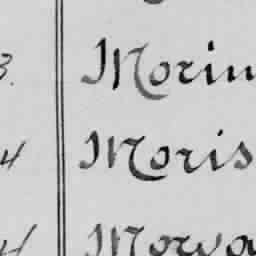 3. Morin
4 Moris
4 Morva